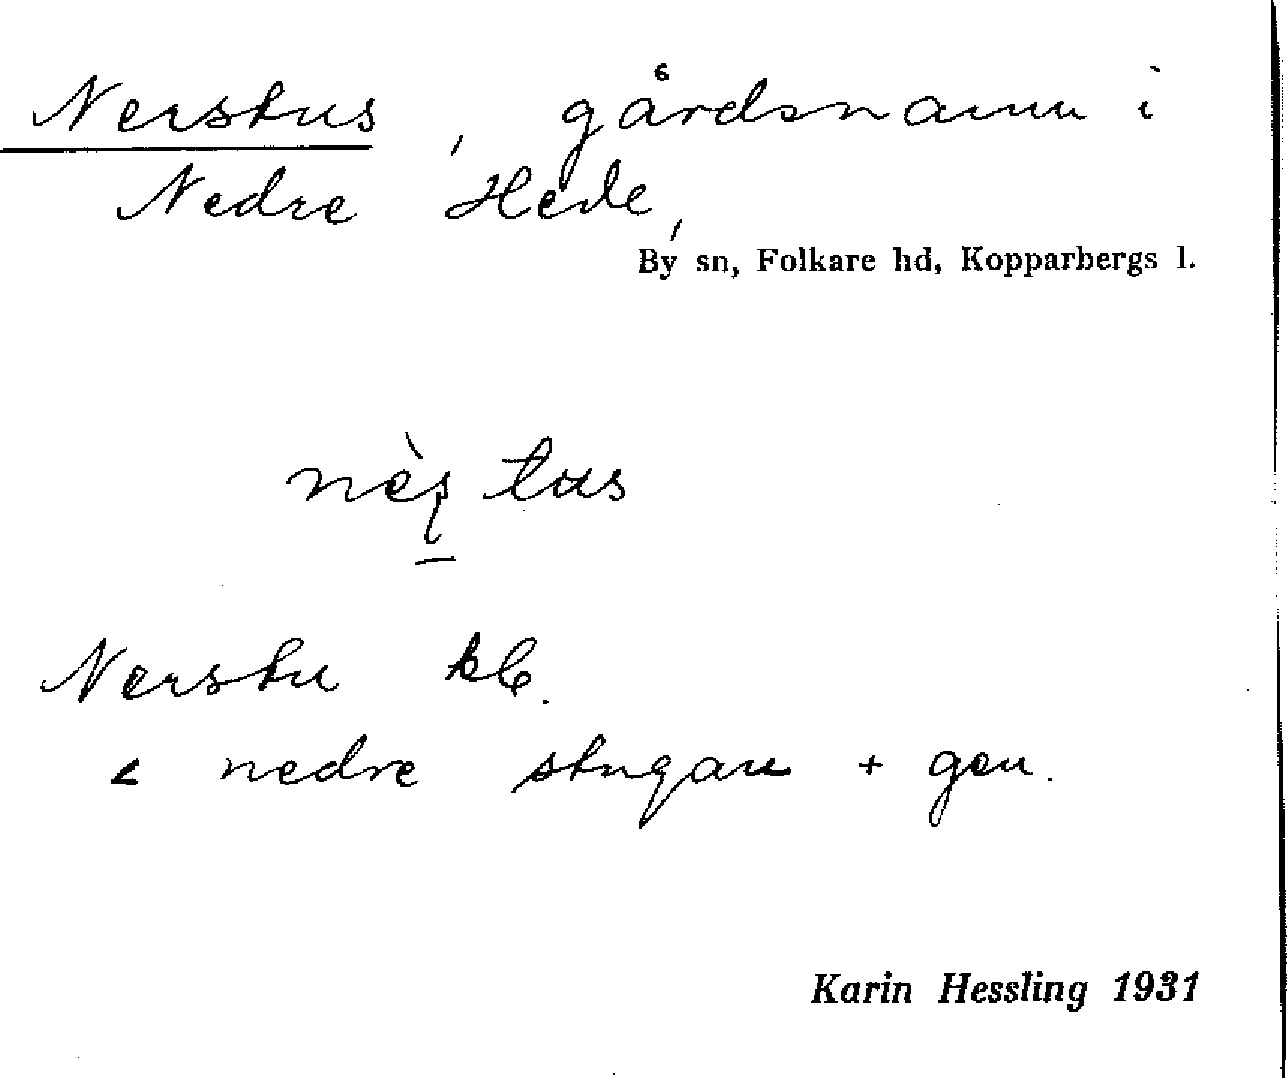 Nerstus, gårdsnamn i
Nedre Hede,
By sn, Folkare hd, Kopparbergs l.
Nerstu
< nedre stugan + gen.
Karin Hessling 1931